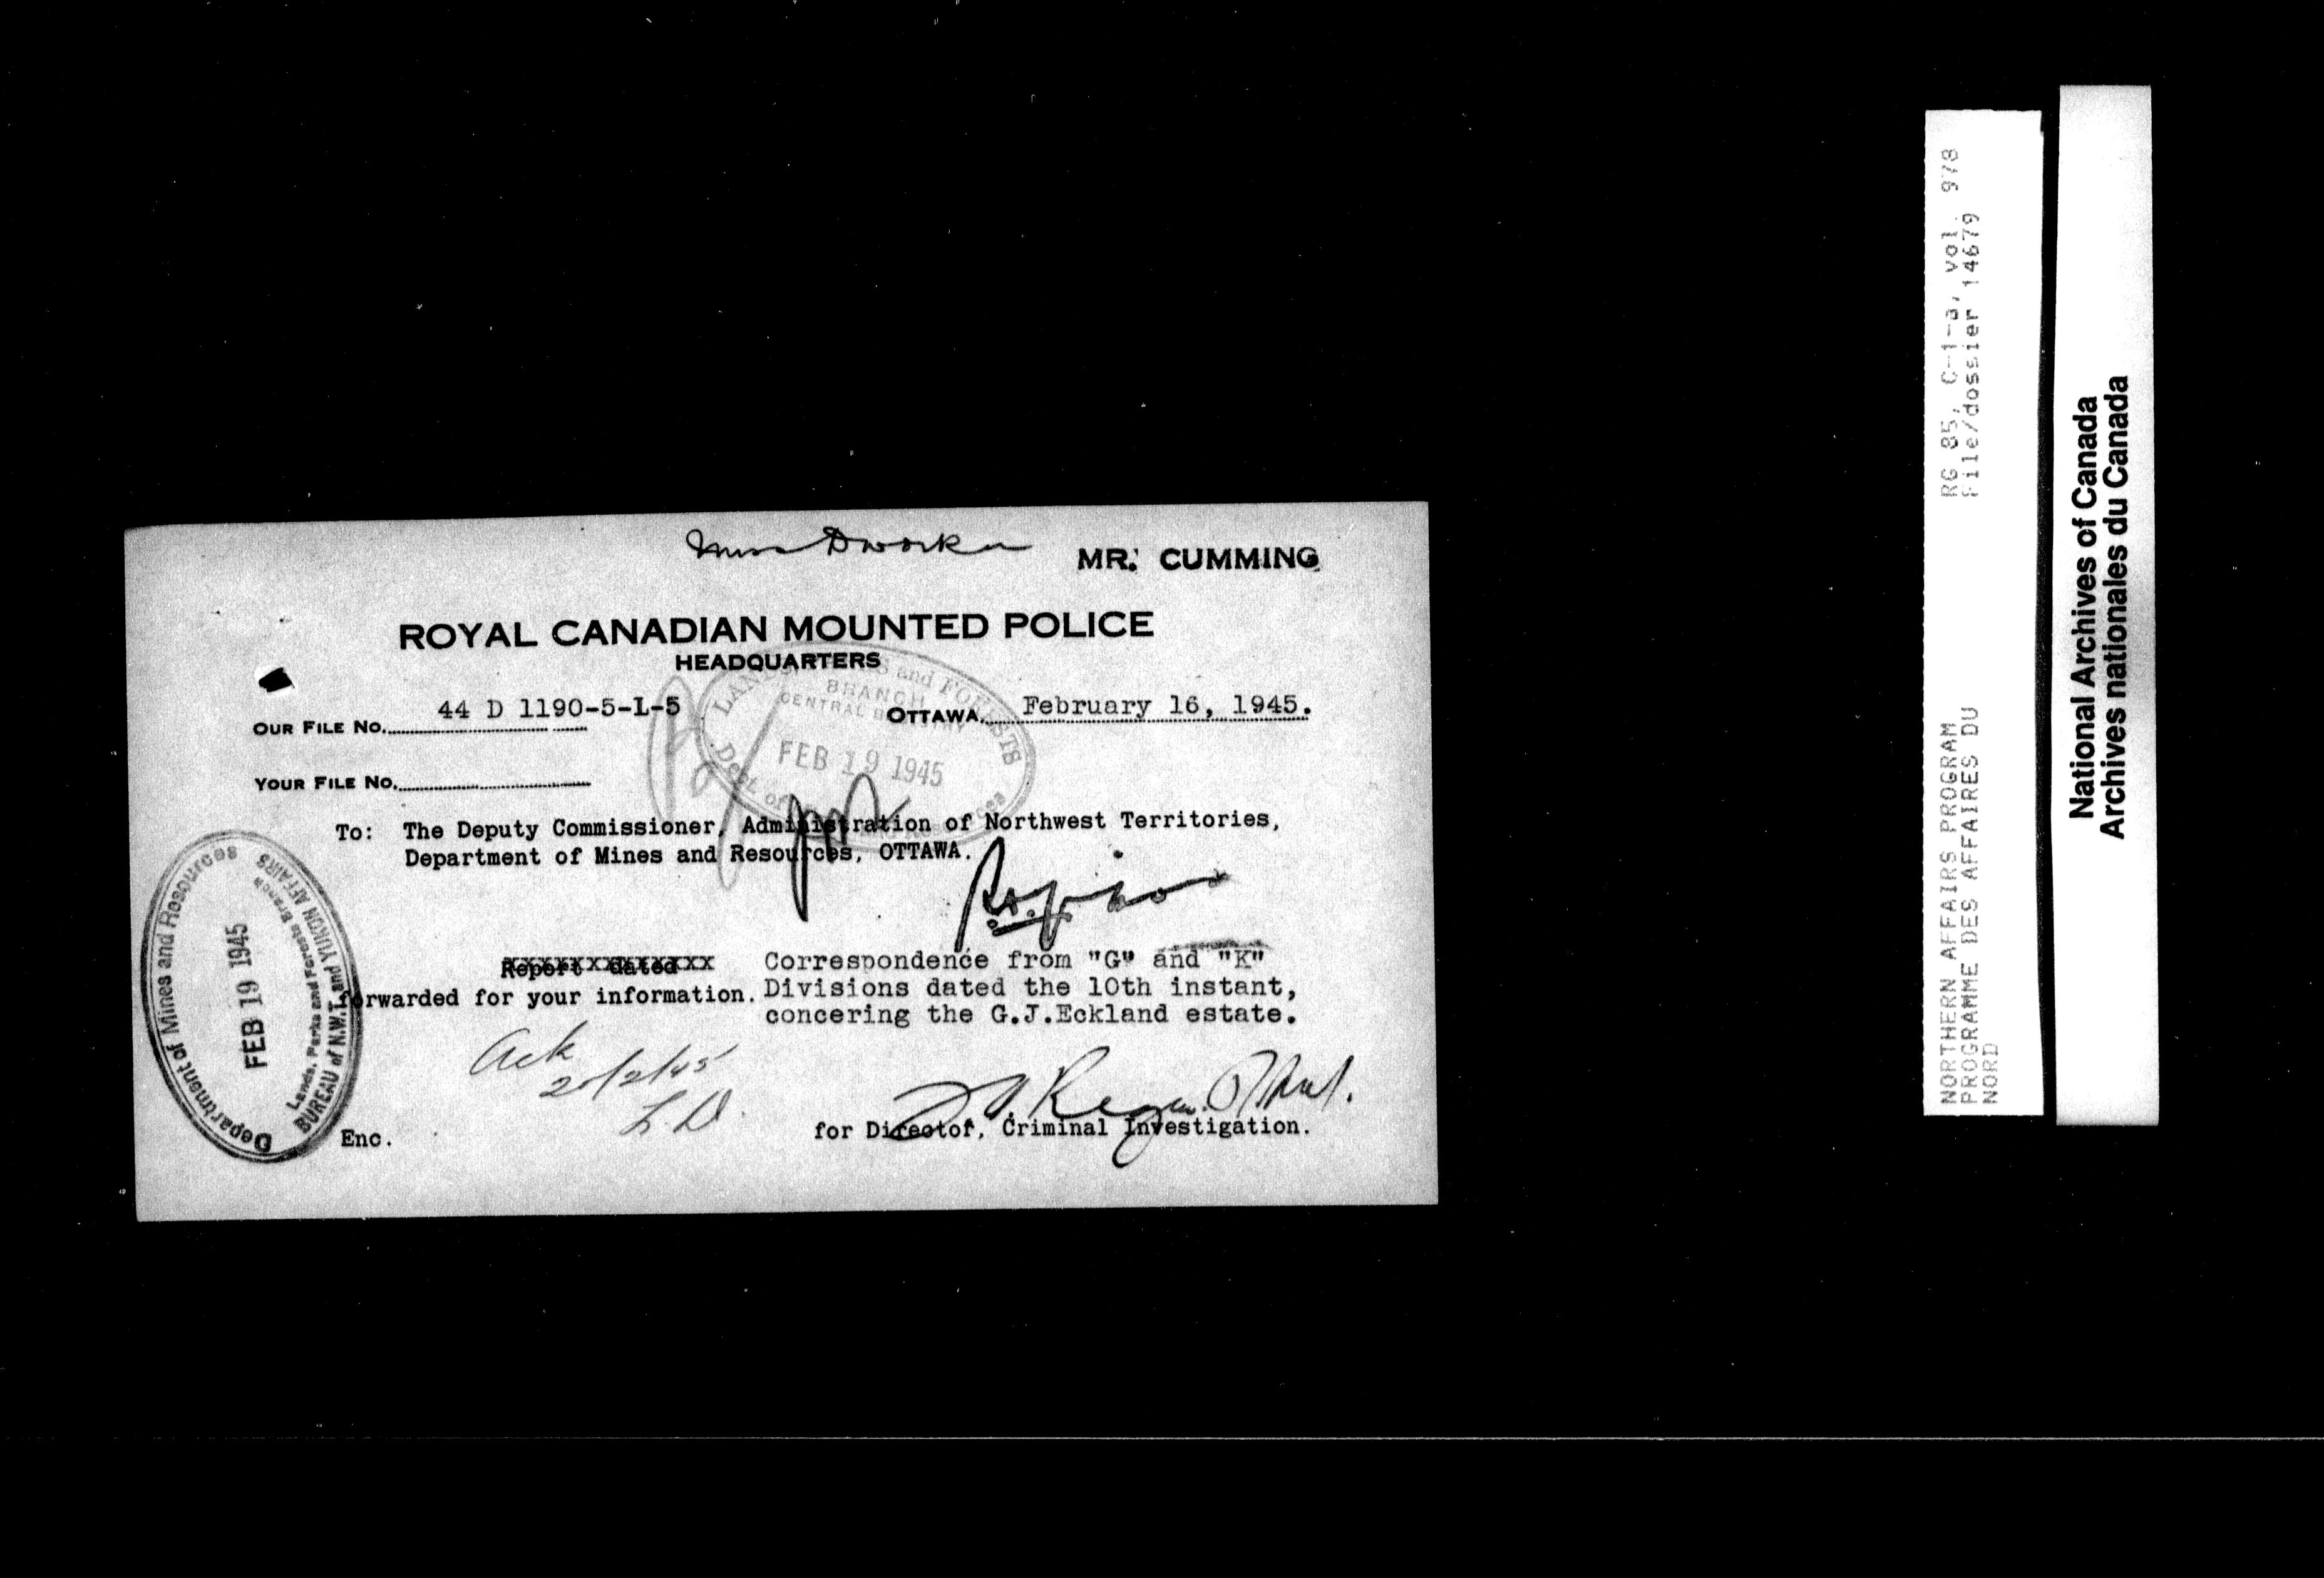 Miss Dworkin
MR. CUMMING
ROYAL CANADIAN MOUNTED POLICE
HEADQUARTERS
OUR FILE NO. 44 D 1190-5-L-5
OTTAWA, February 16, 1945.
YOUR FILE NO.
LANDS, and FORESTS
BRANCH
CENTRAL REGISTRY
FEB 19 1945
Dept of
To: The Deputy Commissioner, Administration of Northwest Territories,
Department of Mines and Resources, OTTAWA.
Report dated
Correspondence from "G" and "K"
forwarded for your information. Divisions dated the 10th instant,
concering the G.J.Eckland estate.
Ack
20/2/45
L D.
for Director, Criminal Investigation.
Enc.
Department of Mines and Resources
FEB 19 1945
Lands, Parks and Forests Branch
BUREAU of N.W.T. and YUKON AFFAIRS
NORTHERN AFFAIRS PROGRAM RG 85, C-1-a, vol. 978
PROGRAMME DES AFFAIRES DU File/dossier 14679
NORD
National Archives of Canada
Archives nationales du Canada